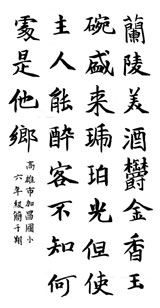 蘭陵美酒欝金香玉
碗盛来琥珀光但使
主人能醉客不知何
處是他鄉
高雄市加昌國小
六年級簡于